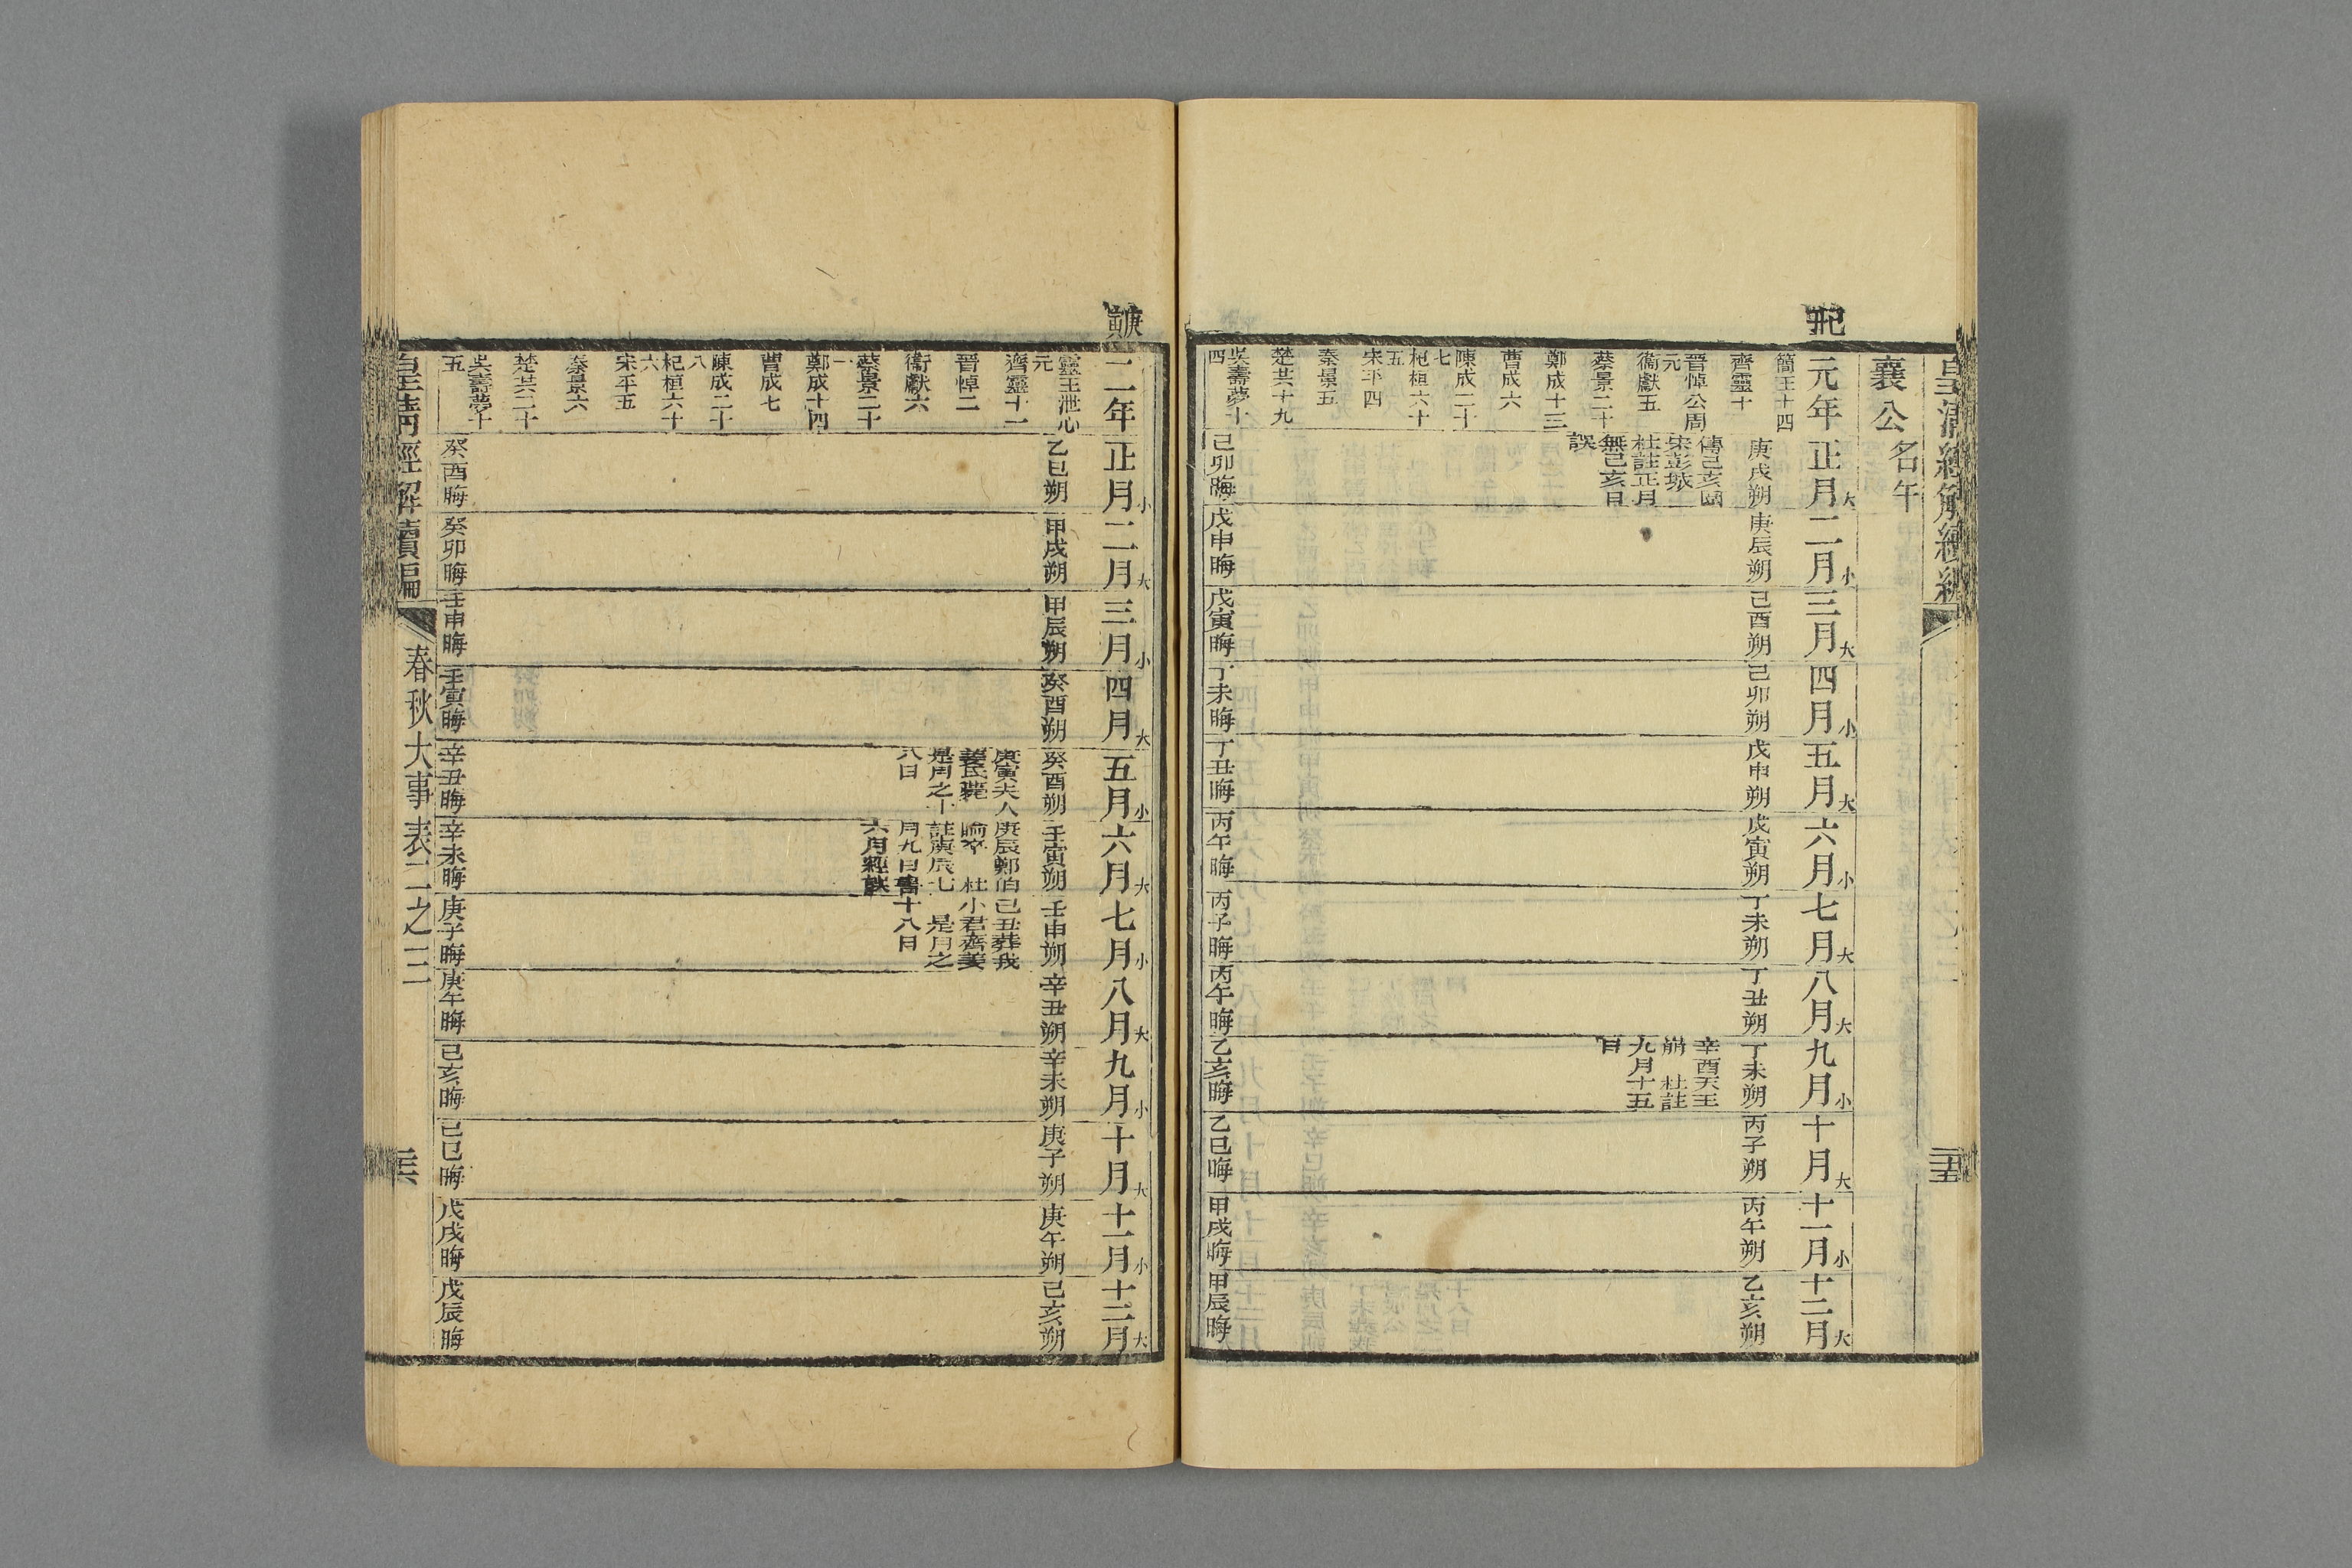 皇清經解續編
襄公名午
己丑
元年
簡王十四
齊靈十
晉悼公周元
衞獻五
蔡景二十
鄭成十三
曹成六
陳成二十七
杞桓六十五
宋平四
秦景五
楚共十九
吳壽夢十四
正月大
庚戌朔
傳己亥圍
宋彭城
杜註正月
無己亥日
誤
己卯晦
二月小
庚辰朔
戊申晦
三月大
己酉朔
戊寅晦
四月小
己卯朔
丁未晦
五月大
戊申朔
丁丑晦
六月小
戊寅朔
丙午晦
七月大
丁未朔
丙子晦
八月大
丁丑朔
丙午晦
九月小
丁未朔
辛酉天王
崩 杜註
九月十五
日
乙亥晦
十月大
丙子朔
乙巳晦
十一月小
丙午朔
甲戌晦
十二月大
乙亥朔
甲辰晦
庚寅
二年
靈王泄心元
齊靈十一
晉悼二
衞獻六
蔡景二十一
鄭成十四
曹成七
陳成二十八
杞桓六十六
宋平五
秦景六
楚共二十
吳壽夢十五
正月小
乙巳朔
癸酉晦
二月大
甲戌朔
癸卯晦
三月小
甲辰朔
壬申晦
四月大
癸酉朔
壬寅晦
五月小
癸酉朔
庚寅夫人
姜氏薨
是月之十
八日
辛丑晦
六月大
壬寅朔
庚辰鄭伯
睔卒 杜
註庚辰七
月九日書
六月經誤
辛未晦
七月小
壬申朔
己丑葬我
小君齊姜
是月之
十八日
庚子晦
八月大
辛丑朔
庚午晦
九月小
辛未朔
己亥晦
十月大
庚子朔
己巳晦
十一月小
庚午朔
戊戌晦
十二月大
己亥朔
戊辰晦
皇清經解續編
春秋大事表二之三